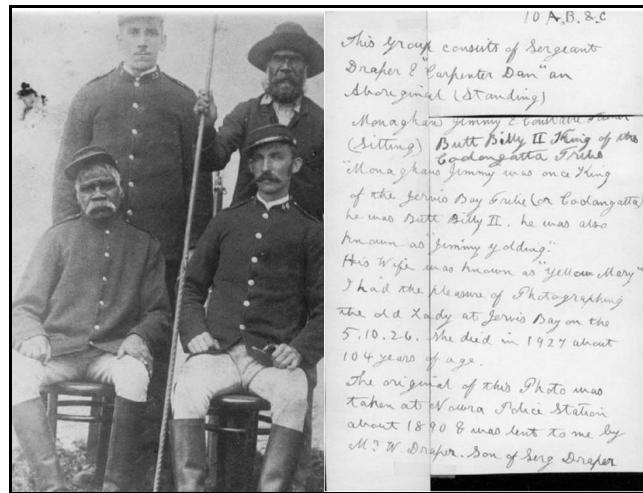 10 A.B. & C
This Group consists of Sergeant
Draper & "Carpenter Dan" an
Aboriginal (Standing)
Monaghan Jimmy &
(Sitting) Butt Billy II King of the
Coolangatta Tribe
"Monaghans Jimmy was once King
of the Jervis Bay Tribe (or Coolangatta)
he was Butt Billy II. he was also
known as "Jimmy Golding."
His Wife was known as "Yellow Mary"
I had the pleasure of Photographing
the old Lady at Jervis Bay on the
5.10.26. She died in 1927 about
104 years of age.
The original of this Photo was
taken at Nowra Police Station
about 1890 & was lent to me by
Mr W. Draper. Son of Serg Draper